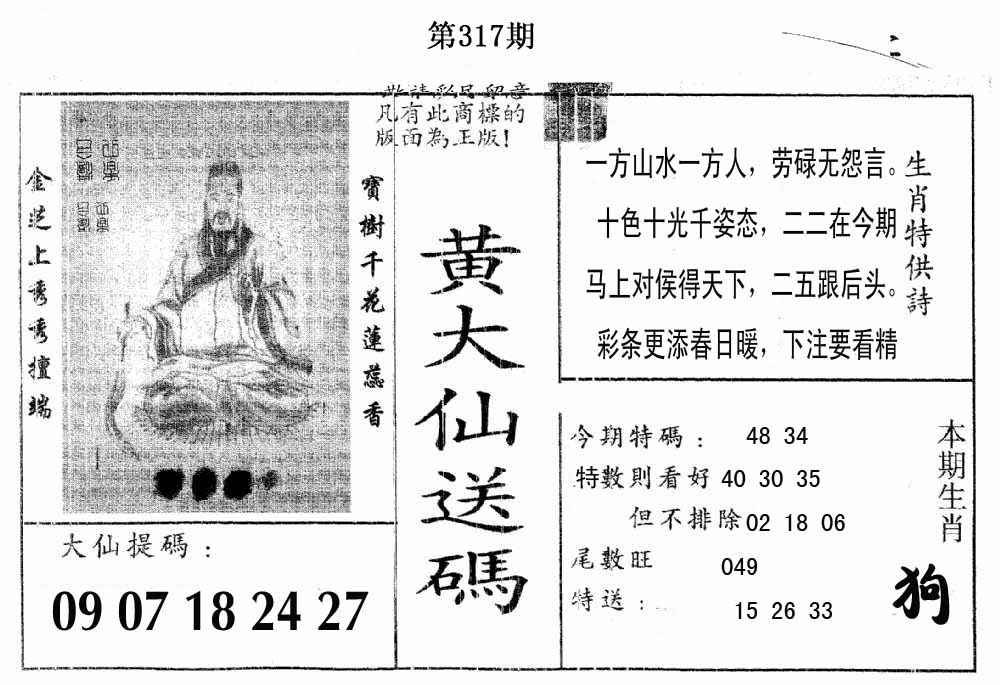 第317期
敬請彩民留意
凡有此商標的
版面為正版!
金芝上秀
擅端
寶樹千花蓮蕊香
黃大仙送碼
大仙提碼:
09 07 18 24 27
一方山水一方人,劳碌无怨言。
十色十光千姿态,二二在今期
马上对侯得天下,二五跟后头。
彩条更添春日暖,下注要看精
生肖特供詩
今期特碼: 48 34
特數則看好 40 30 35
但不排除 02 18 06
尾數旺 049
特送: 15 26 33
本期生肖
狗